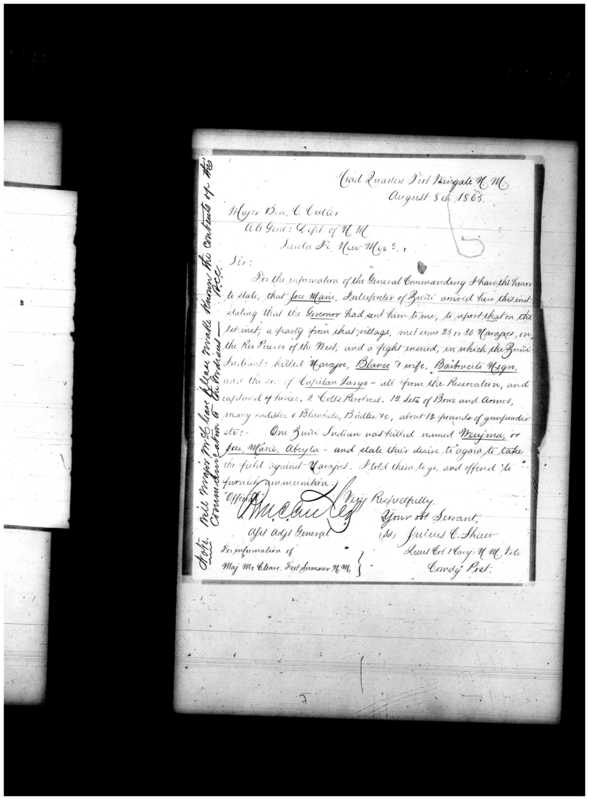 Head Quarters Fort Wingate N. M.
August 8th 1865.
Major Ben. C. Cutler
Genl: Dept of N M
Santa Fe New Mex:
Sir:
For the information of the General Commanding I have the honor
to state, that Jose Marie, Interpreter of Zuñi arrived here this inst
stating that the Govenor had sent him to me, to report that on the
inst, a party from that village, met some 25 or 30 Navajoes, on
the Rio Puerco of the West, and a fight ensued, in which the Zuñi
Indians killed Navajoe, Blanco & wife, Barboncito Negro,
and the son of Capitan Largo - all from the Reservation, and
captured horses, 2 Colts Revolvers. 12 Sets of Bows and Arrows,
many saddles & Blankets, Bridles &c, about 12 pounds of gunpowder
etc:. One Zuñi Indian was killed named or
Jose Marie, Abeyta - and state their desire to again to take
the field against Navajoes. I told them to go and offered to
furnish ammunition.
Very Respectfully
Official Your obt Servant,
Julius C. Shaw
Asst Adjt General
Lieut Col 1 Cavy. N M Vols
For information of
Comdg Post.
Maj McCleave. Fort Sumner N. M.
Note. Will Major McCleave please make known the contents of this
communication to the Indians —